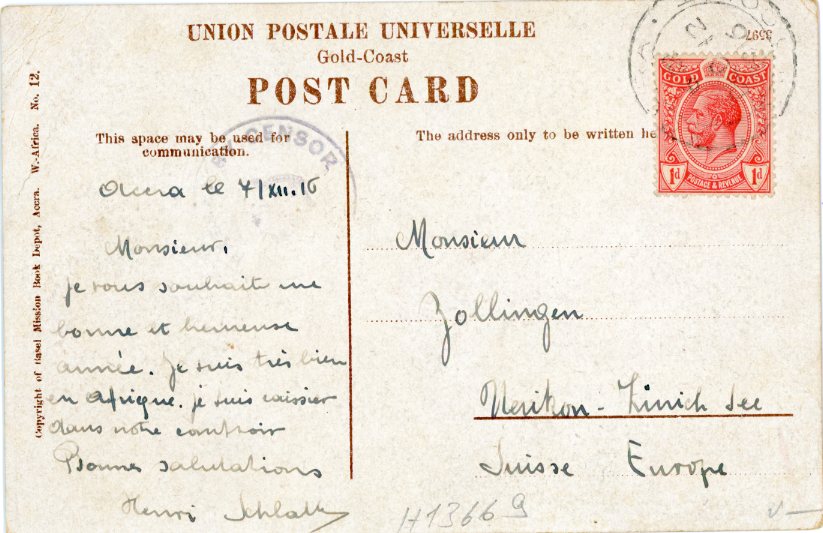 UNION POSTALE UNIVERSELLE
Gold-Coast
POST CARD
3597
Copyright of Basel Mission Book Depot, Accra. W.-Africa. No. 12.
This space may be used for
communication.
The address only to be written he
CENSOR
GOLD COAST
1d POSTAGE & REVENUE 1d
Accra le 7/XII.16
Monsieur,
je vous souhaite une
bonne et heureuse
année. Je suis très bien
en Afrique. je suis caissier
dans notre comptoir
Bonnes salutations
Henri Schlatt
Monsieur
Zollinger
Uerikon - Zürich See
Suisse Europe
H13669